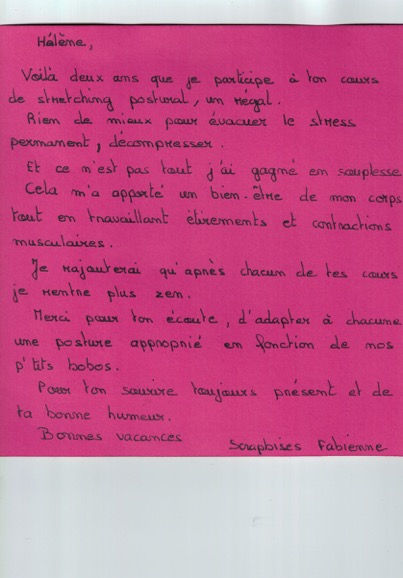 Hélène,
Voilà deux ans que je participe à ton cours
de stretching postural, un régal.
Rien de mieux pour évacuer le stress
permanent, décompresser.
Et ce n'est pas tout j'ai gagné en souplesse
Cela m'a apporté un bien-être de mon corps
tout en travaillant étirements et contractions
musculaires.
Je rajouterai qu'après chacun de tes cours
je rentre plus zen.
Merci pour ton écoute, d'adapter à chacune
une posture approprié en fonction de nos
p'tits bobos.
Pour ton sourire toujours présent et de
ta bonne humeur.
Bonnes vacances
Scrapbises Fabienne